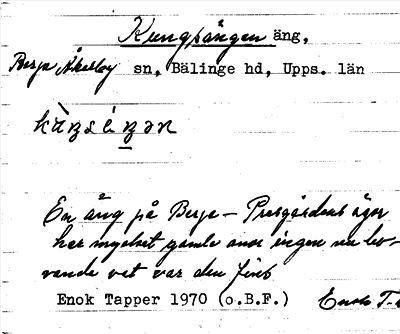 Kungsängen äng,
Åkerby sn, Bälinge hd, Upps. län
En äng på Berga - Prestgårdens ägor
har mycket gamle anor ingen nu lev-
vande vet var den fins
Enok Tapper 1970 (o.B.F.) Enok T.